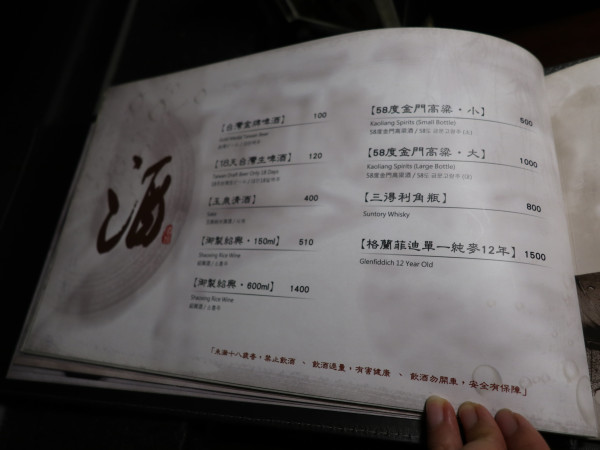 酒
【台灣金牌啤酒】 100
Gold Medal Taiwan Beer
【18天台灣生啤酒】 120
Taiwan Draft Beer Only 18 Days
【玉泉清酒】 400
Sake
【御製紹興·150ml】 510
Shaoxing Rice Wine
【御製紹興·600ml】 1400
Shaoxing Rice Wine
【58度金門高粱·小】 500
Kaoliang Spirits (Small Bottle)
【58度金門高粱·大】 1000
Kaoliang Spirits (Large Bottle)
【三得利角瓶】 800
Suntory Whisky
【格蘭菲迪單一純麥12年】 1500
Glenfiddich 12 Year Old
「未滿十八歲者，禁止飲酒 、 飲酒過量，有害健康 、 飲酒勿開車，安全有保障」